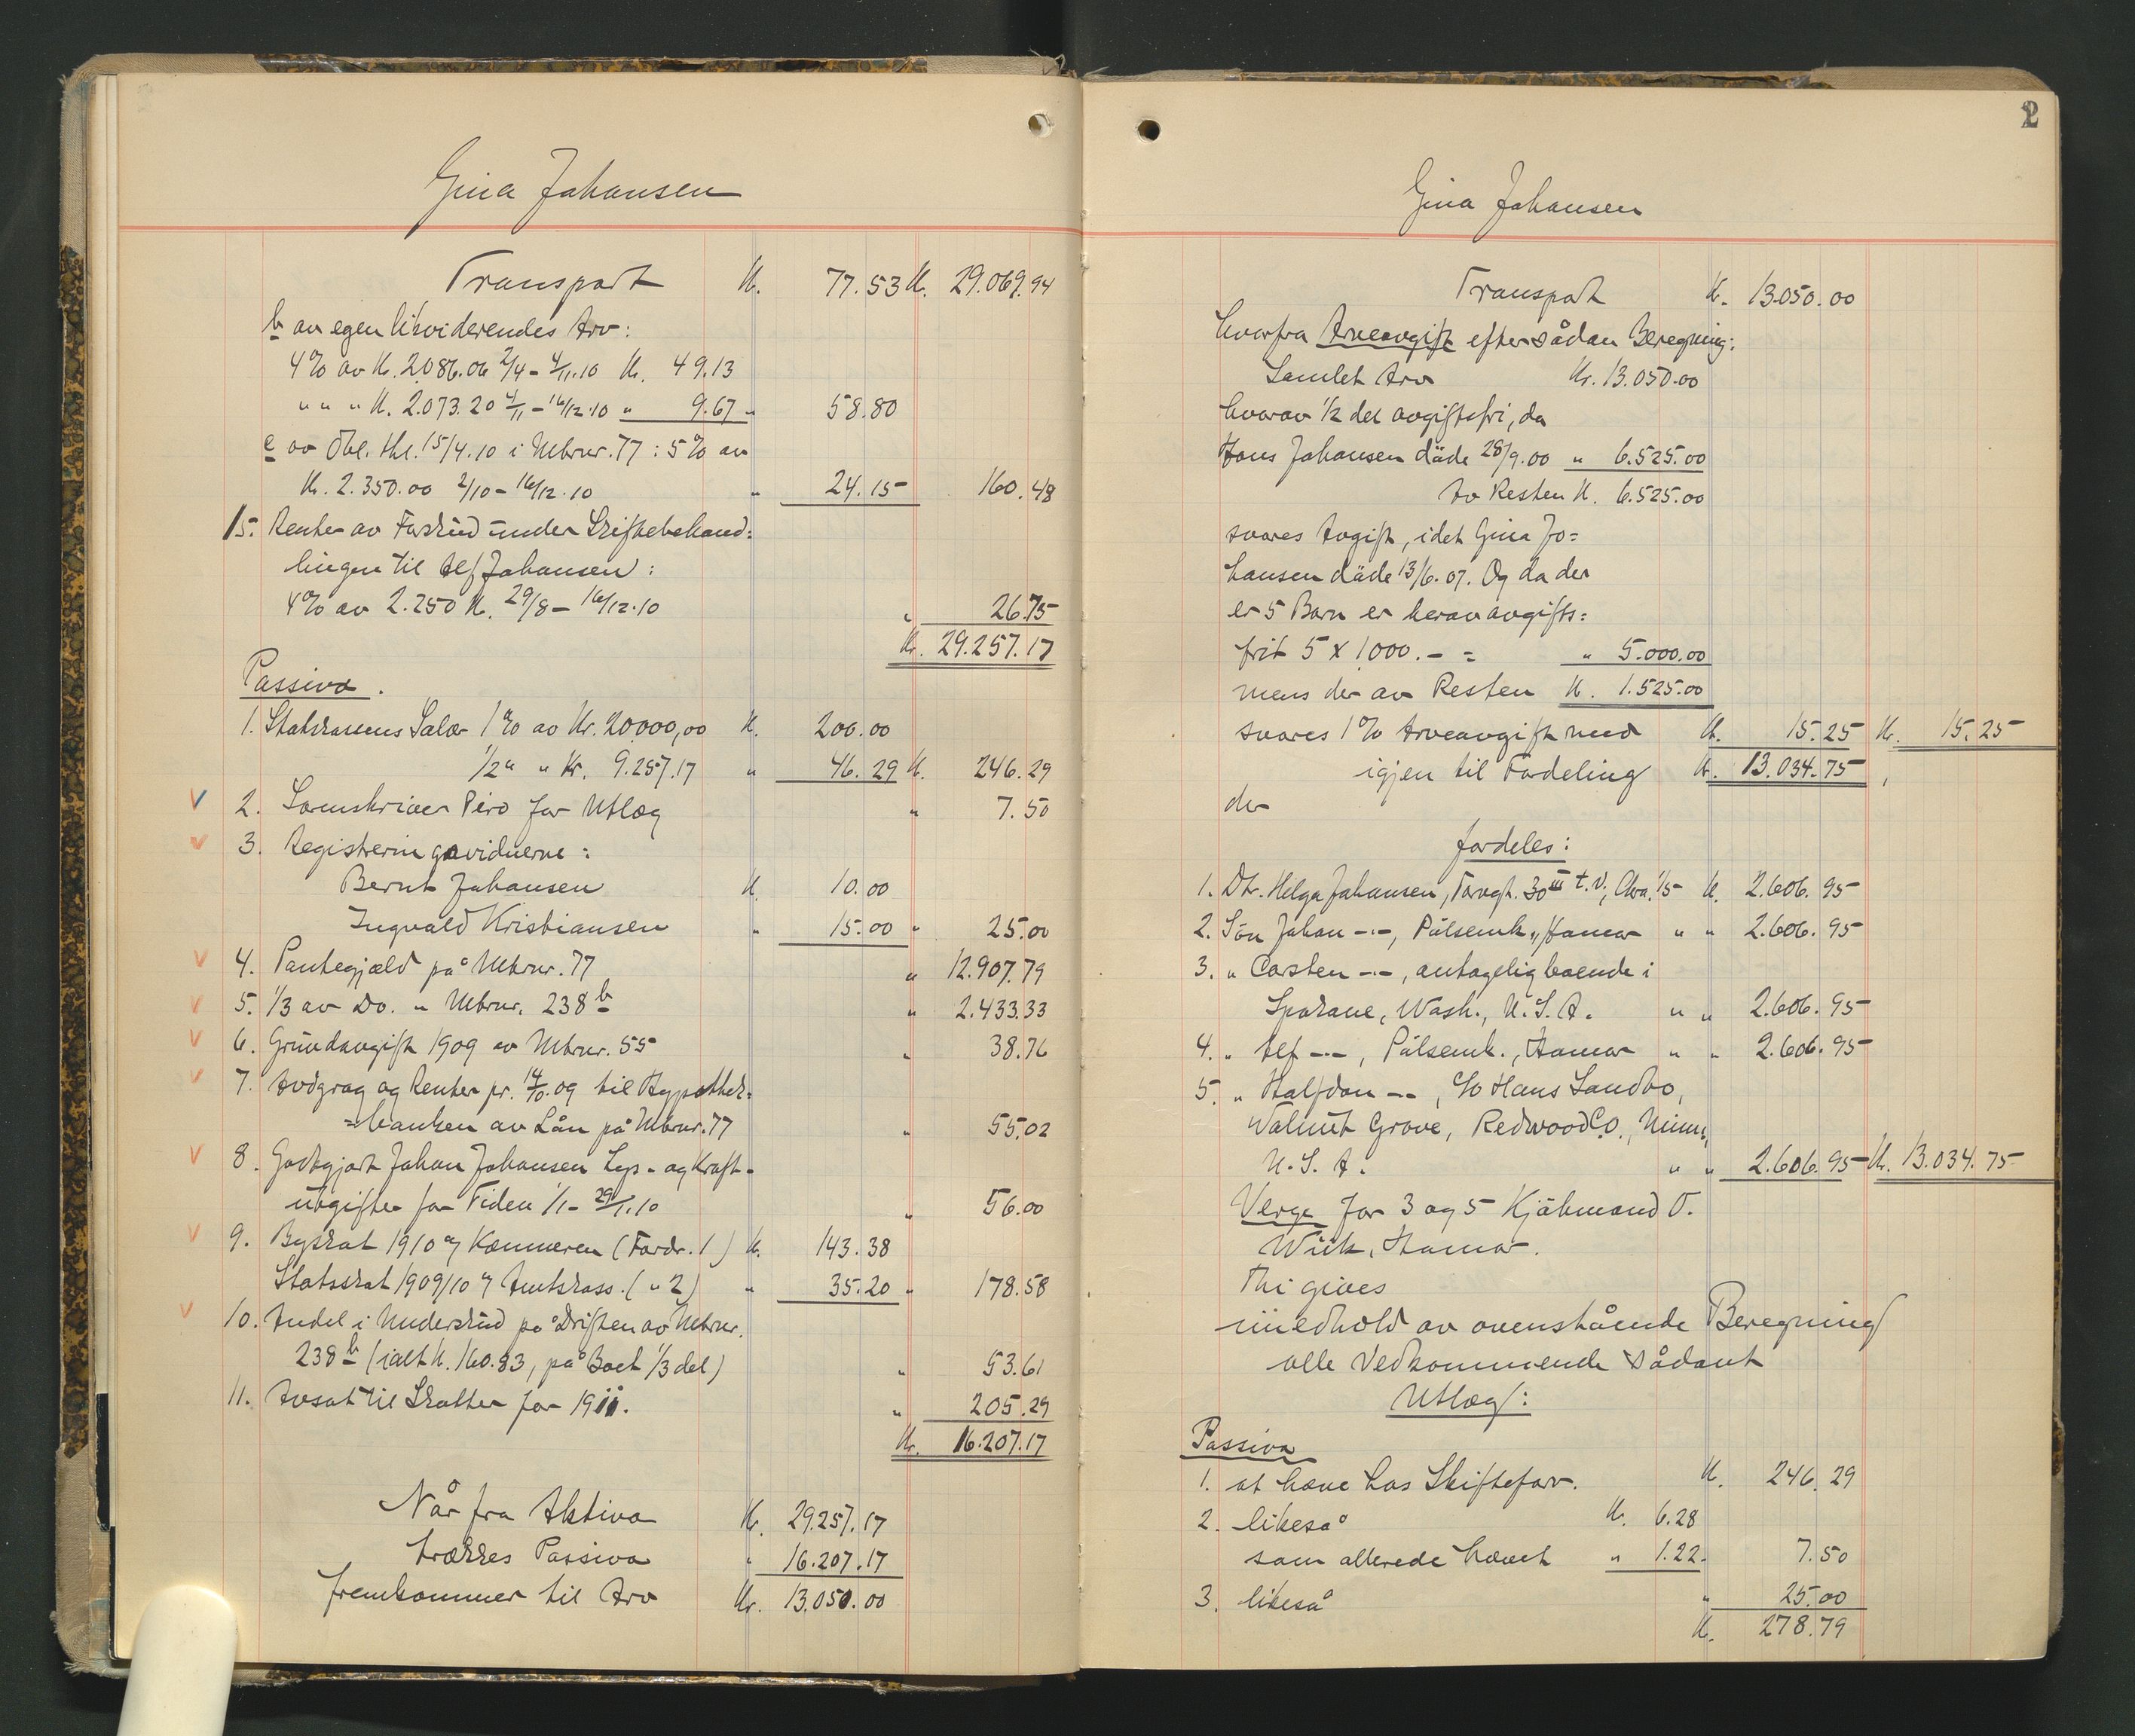 Gina Johansen
Transport Kr. 77.53 Kr. 29.069.94
b av egen likviderendes Arv:
4% av Kr. 2.086.06 2/4 - 4/11.10 Kr. 49.13
" " " Kr. 2.073.20 4/11 - 16/12.10 " 9.67 " 58.80
c av Obl. thl. 15/4.10 i Mtrnr. 77 : 5% av
Kr. 2.350.00 2/10 - 16/12.10 " 24.15 160.48
15. Renter av Forskud under Skiftebehand=
lingen til Alf Johansen :
4% av 2.250 Kr. 29/8 - 16/12.10 " 26.75
Kr. 29.257.17
Passiva.
1. Statskassens Salær 1% av Kr. 20.000,00 Kr. 200.00
1/2 " " Kr. 9.257.17 " 46.29 Kr. 246.29
2. Sorenskriver Piro for Utlæg " 7.50
3. Registreringsvidnerne :
Bernt Johansen Kr. 10.00
Ingvald Kristiansen " 15.00 " 25.00
4. Pantegjæld på Mtrnr. 77 " 12.907.79
5. 1/3 av Do. " Mtrnr. 238 b " 2.433.33
6. Grundavgift 1909 av Mtrnr. 55 " 38.76
7. Avdrag og Renter pr. 14/10.09 til Hypothek=
=banken av Lån på Mtrnr. 77 " 55.02
8. Godtgjort Johan Johansen Lys- og Kraft-
utgifter for Tiden 1/1 - 29/1.10 " 56.00
9. Byskat 1910 Kæmneren (Fordr. 1) Kr. 143.38
Statsskat 1909/10 Amtskass. ( " 2) " 35.20 " 178.58
10. Andel i Underskud på Driften av Mtrnr.
238 b (ialt Kr. 160.83, på Boet 1/3 del) " 53.61
11. Avsat til Skatter for 1911. " 205.29
Kr. 16.207.17
Når fra Aktiva Kr. 29.257.17
trækkes Passiva " 16.207.17
fremkommer til Arv Kr. 13.050.00
2
Gina Johansen
Transport Kr. 13.050.00
hvorfra Arveavgift efter sådan Beregning:
Samlet Arv Kr. 13.050.00
hvorav 1/2 del avgiftsfri, da
Hans Johansen döde 28/9.00 " 6.525.00
Av Resten Kr. 6.525.00
svares Avgift, idet Gina Jo=
hansen döde 13/6.07. Og da der
er 5 Barn er herav avgifts=
frit 5 x 1000.- = " 5.000.00
mens der av Resten Kr. 1.525.00
svares 1% Arveavgift med Kr. 15.25 Kr. 15.25
igjen til Fordeling Kr. 13.034.75
der
fordeles :
1. Dtr. Helga Johansen, Torvgt. 30 III t.v., Chra. 1/5 Kr. 2.606.95
2. Sön Johan -"-, Pölsemk., Hamar " " 2.606.95
3. " Carsten -"-, antagelig boende i
Spokane, Wash., U.S.A. " " 2.606.95
4. " Alf -"-, Pölsemk., Hamar " " 2.606.95
5. " Halfdan -"-, c/o Hans Sandbo,
Walnut Grove, Redwood Co., Minn.,
U.S.A. " " 2.606.95 Kr. 13.034.75
Verge for 3 og 5 Kjöbmand O.
Wiik, Hamar.
Thi gives
i medhold av ovenstående Beregning
alle Vedkommende sådant
Utlæg :
Passiva
1. at hæve hos Skifteforv. Kr. 246.29
2. likeså Kr. 6.28
som allerede hævet " 1.22. 7.50
3. likeså " 25.00
Kr. 278.79